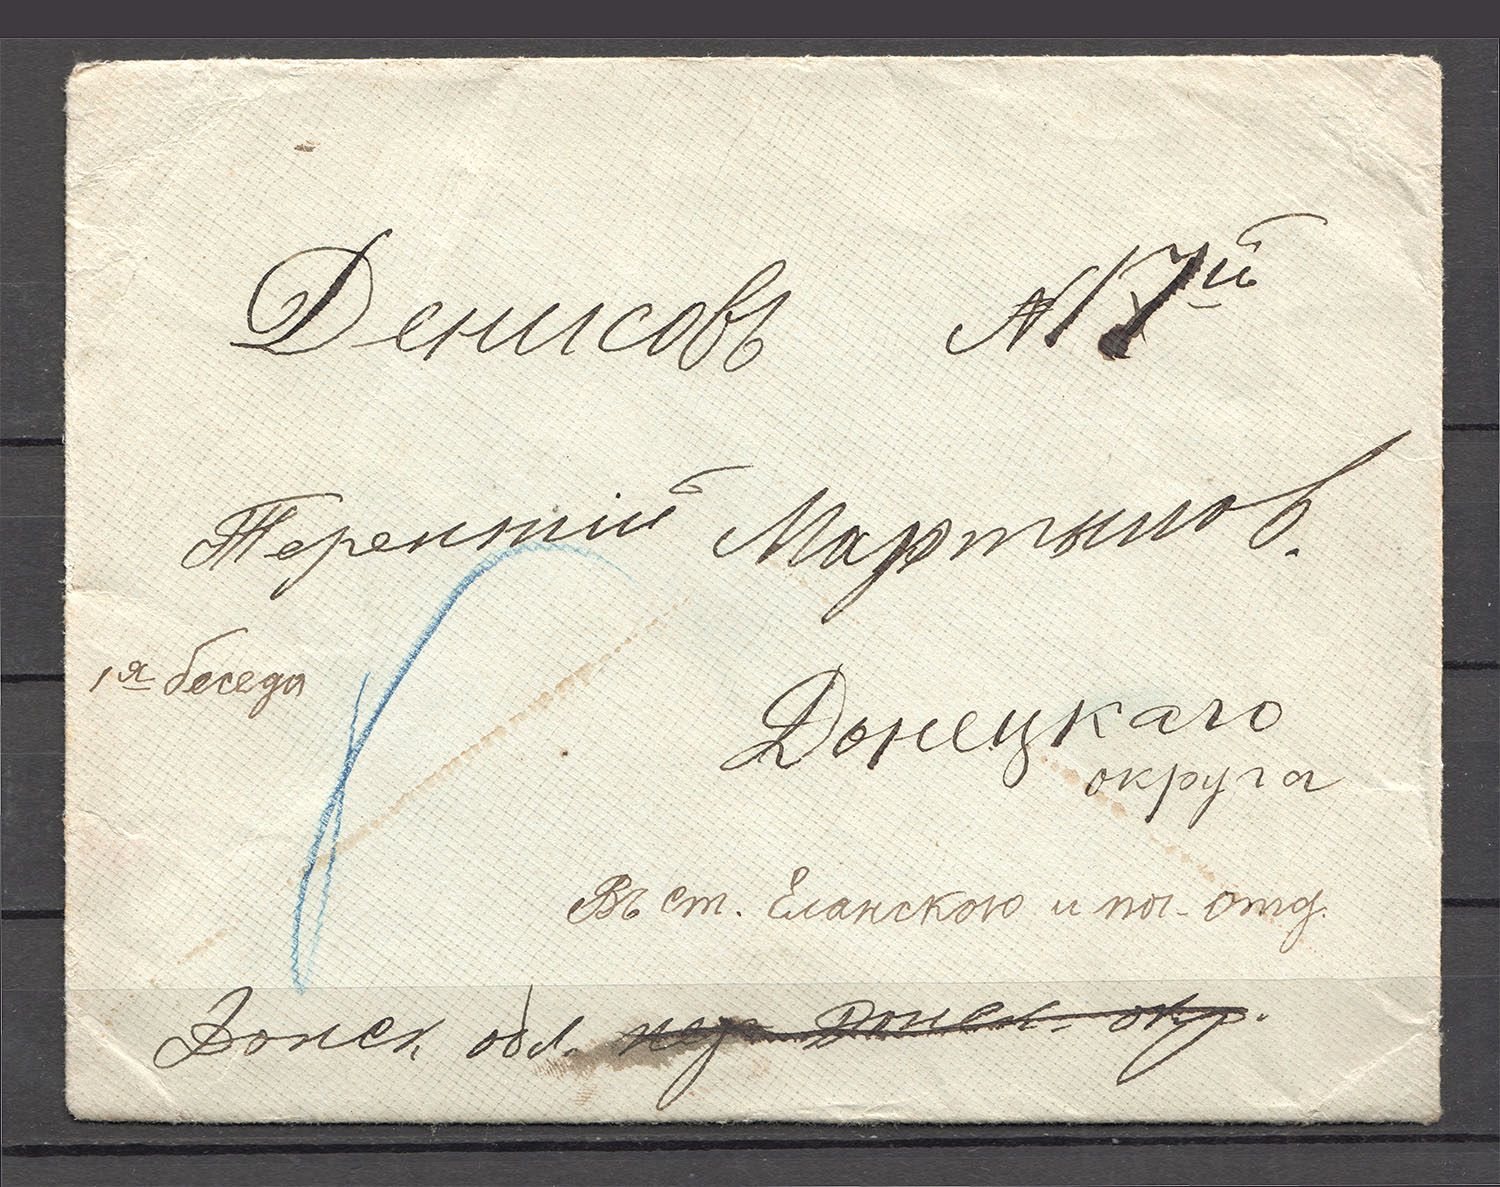 Денисовъ №17й
Терентій Мартынов.
1я беседа
Донецкаго
округа
Въ ст. Еланскою и по. отд.
Донск. обл. Донск. окр.